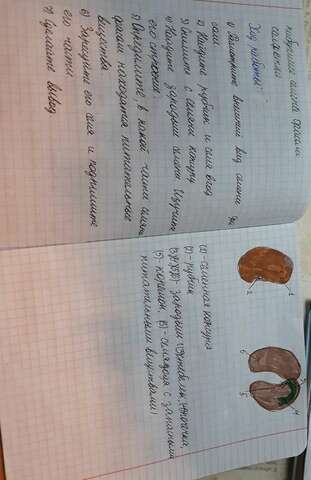 набухшие семена фасоли
салфетки
Ход работы:
1) Рассмотрите внешний вид семени
соли
2) Найдите рубчик и семя вход
3) Снимите с семени кожуру
4) Найдите зародыш семени. Изучите
его строение
5) Определите, в какой части семени
фасоли находятся питательные
вещества
6) Зарисуйте его семя и подпишите
его части
7) Сделайте вывод
1
2
6
3
4
5
(1)-семенная кожура
(2)-рубчик
зародыш стебелёк, почечка,
(5)-корешок, (6)-семядоля с запасными
питательными веществами)